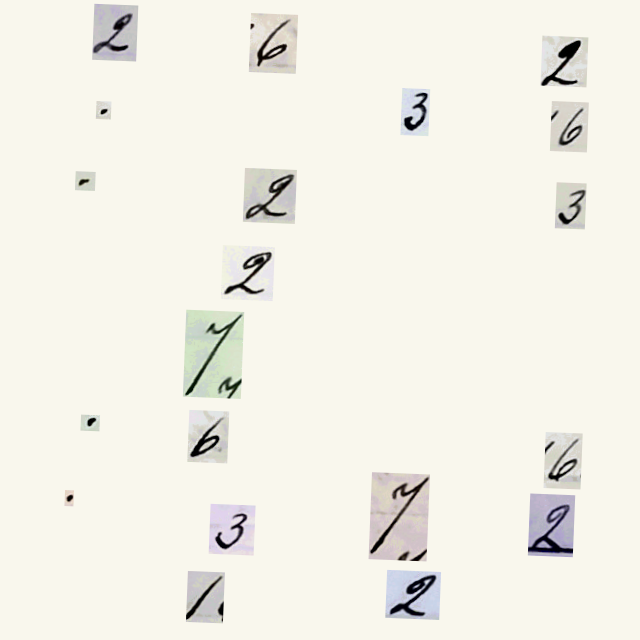 2 6 2
. 3 6
. 2 3
2
7
. 6 6
. 3 7 2
1 2